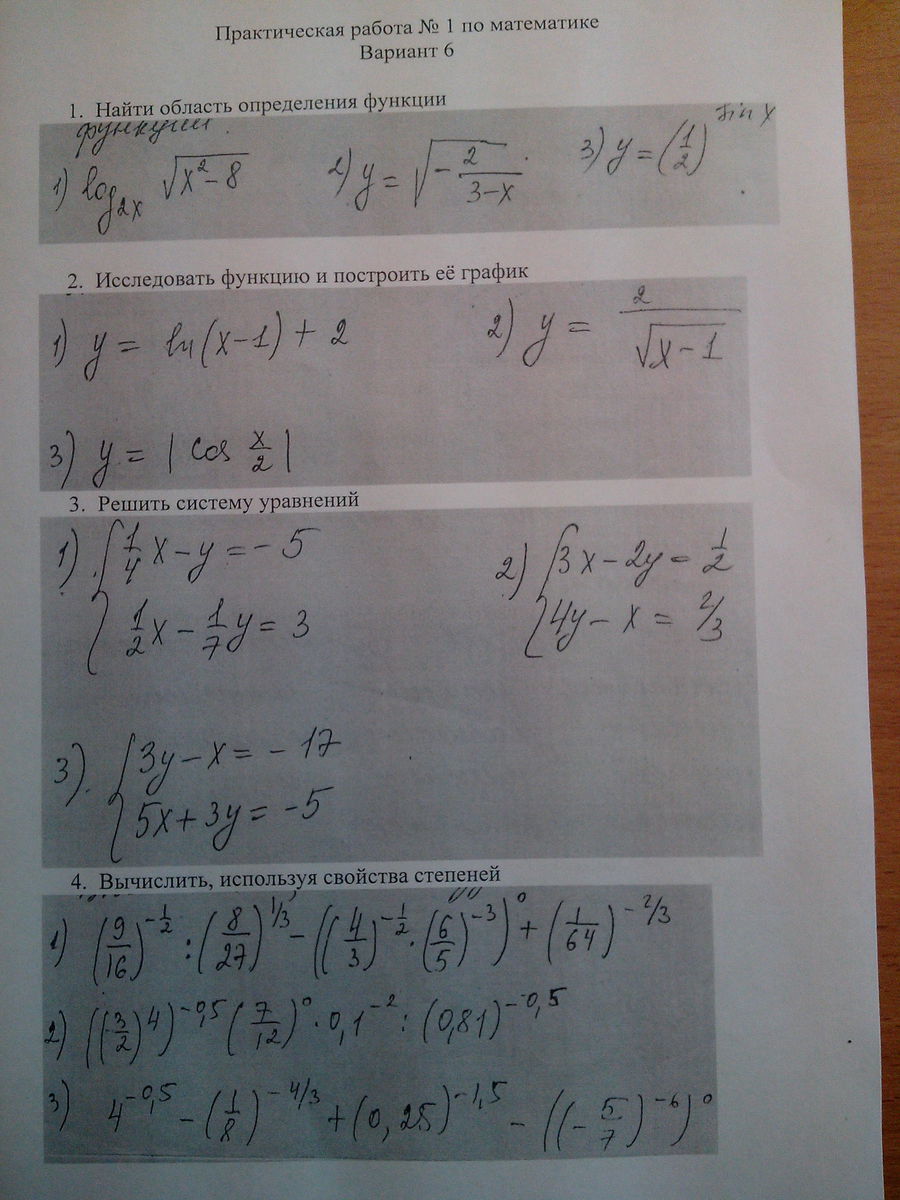 Практическая работа № 1 по математике
Вариант 6
1. Найти область определения функции
функции.
1) log_{2x} √(x² - 8) 2) y = √(- 2/(3-x)) 3) y = (1/2)^{sin x}
2. Исследовать функцию и построить её график
1) y = ln(x-1) + 2 2) y = 2/√(x-1)
3) y = |cos x/2|
3. Решить систему уравнений
1) { 1/4 x - y = -5 2) { 3x - 2y = 1/2
1/2 x - 1/7 y = 3 4y - x = 2/3
3). { 3y - x = -17
5x + 3y = -5
4. Вычислить, используя свойства степеней
1) (9/16)^{-1/2} : (8/27)^{1/3} - ((4/3)^{-1/2} · (6/5)^{-3})^0 + (1/64)^{-2/3}
2) ((3/2)^4)^{-0,5} (7/12)^0 · 0,1^{-2} : (0,81)^{-0,5}
3) 4^{-0,5} - (1/8)^{-4/3} + (0,25)^{-1,5} - ((-5/7)^{-6})^0